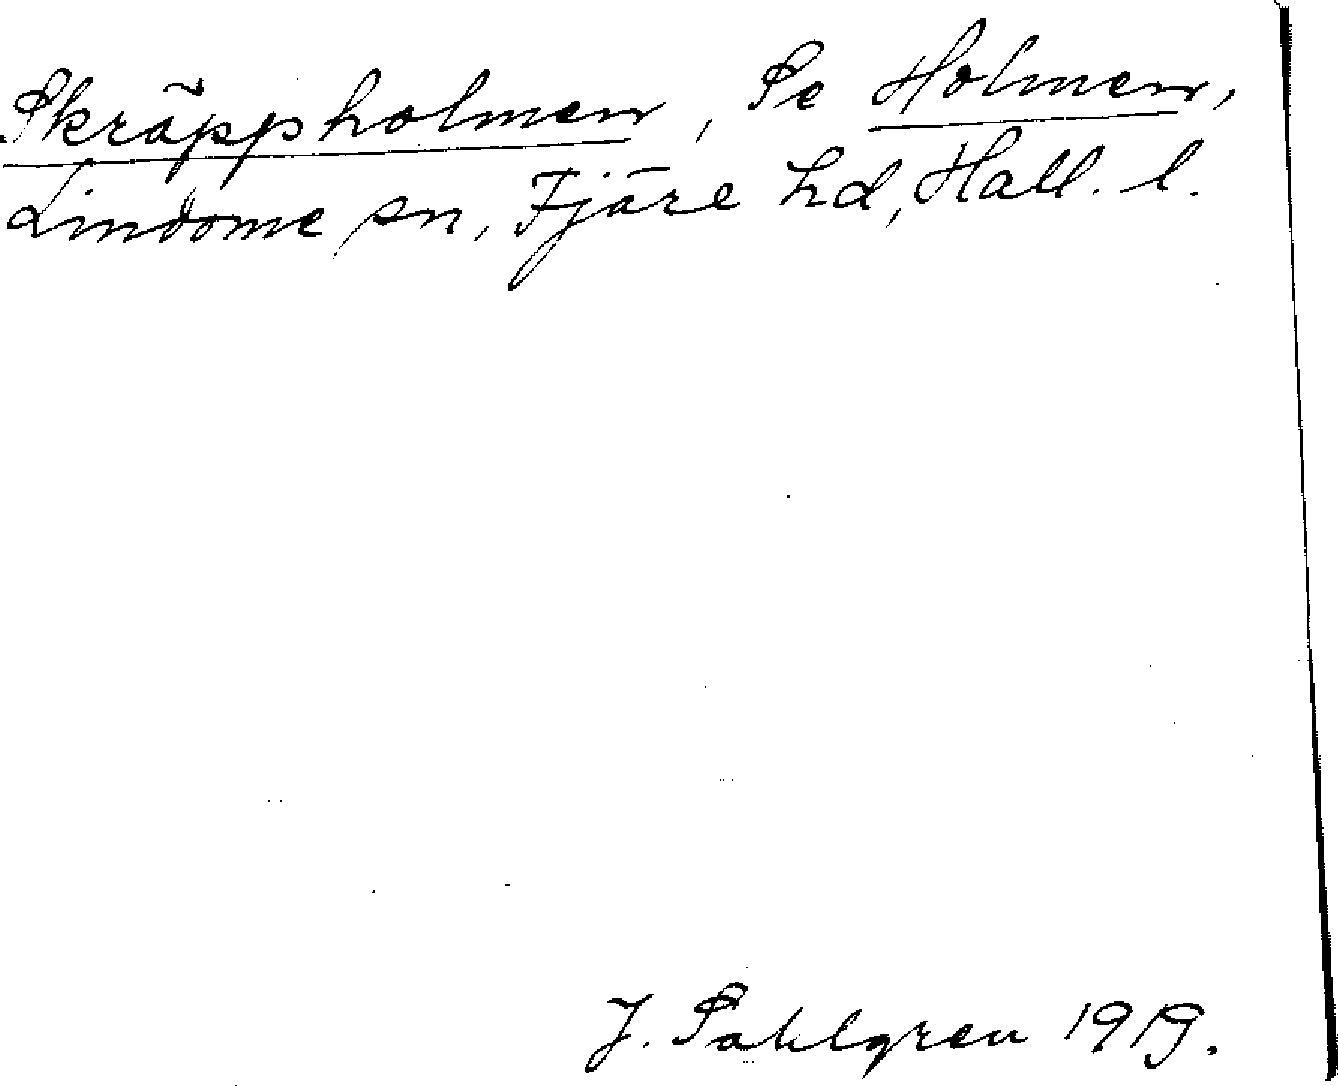 Skräppholmen, Se Holmen,
Lindome sn, Fjäre hd, Hall. l.
J. Sahlgren 1919.